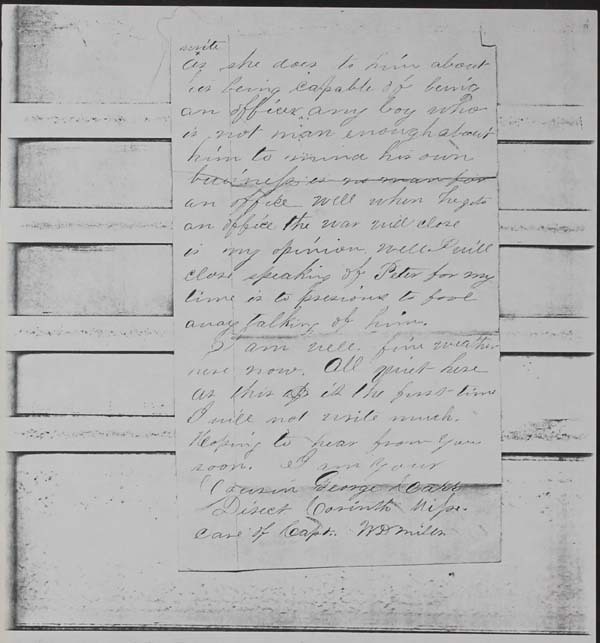 write
as she does to him about
his being capable of being
an officer any boy who
is not man enough about
him to mind his own
business is no man for
an office well when he gets
an office the war will close
is my opinion. well I will
close speaking of Peter for my
time is to presious to fool
away talking of him.
I am well. fine weather
here now. All quiet here
as this is the first time
I will not write much.
Hoping to hear from you
soon. I am your
Cousin George
Direct Corinth Miss.
care of Capt. W D Mills